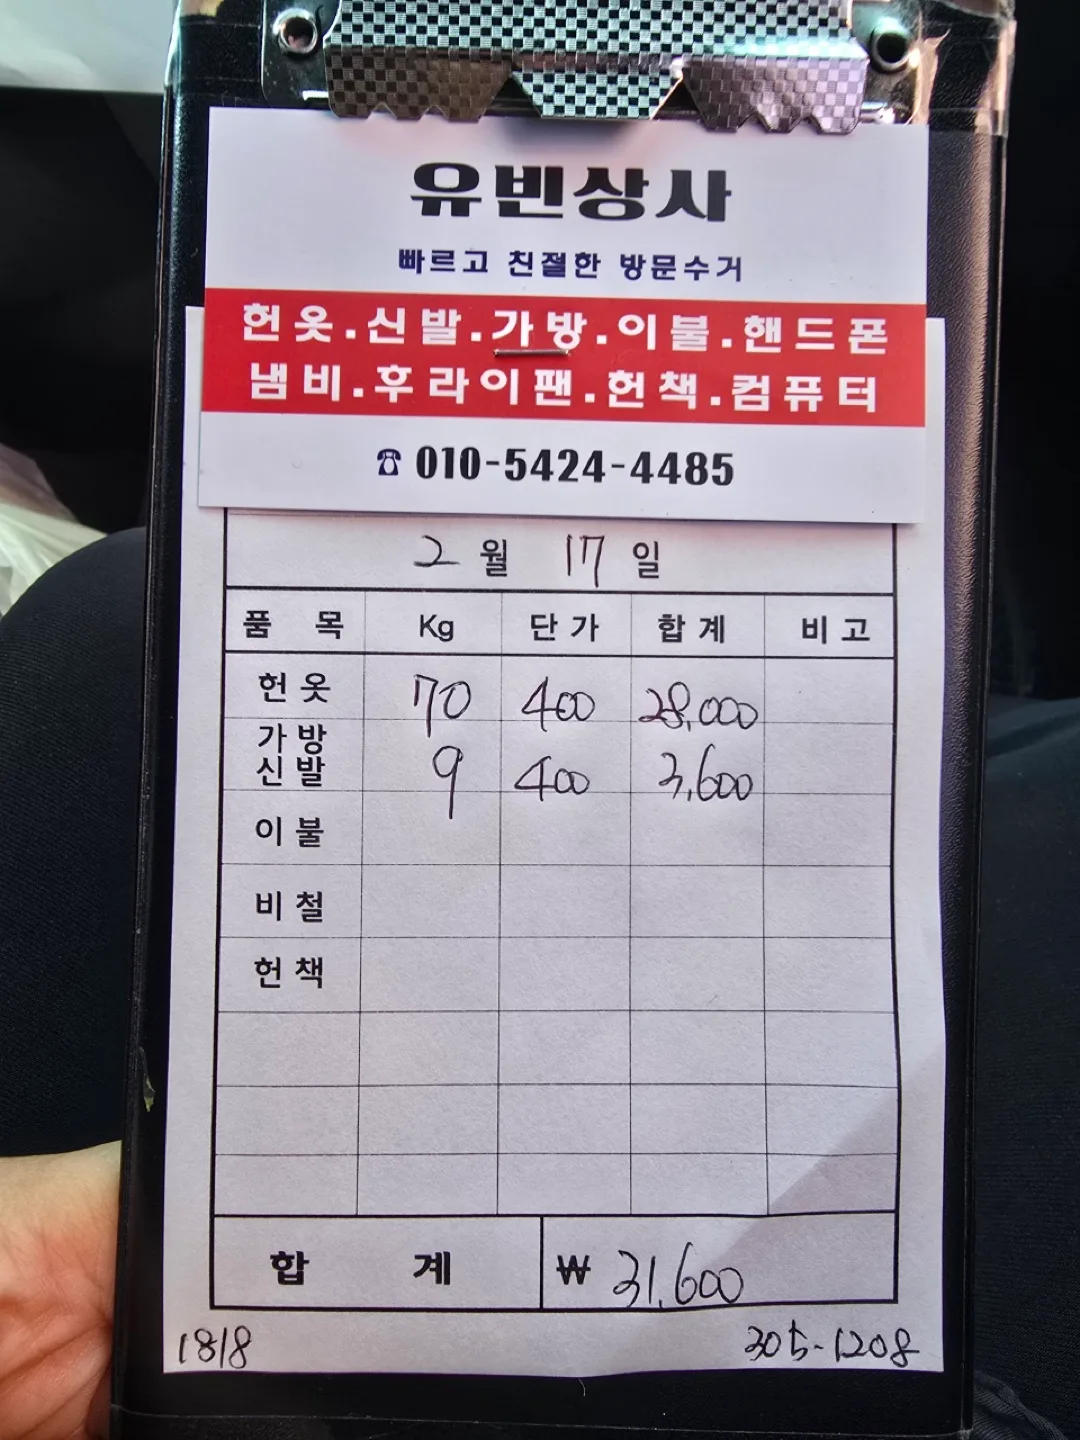 유빈상사
빠르고 친절한 방문수거
헌옷.신발.가방.이불.핸드폰
냄비.후라이팬.헌책.컴퓨터
☎ 010-5424-4485
2월 17일
품목 Kg 단가 합계 비고
헌옷 70 400 28,000
가방
신발 9 400 3,600
이불
비철
헌책
합계 ₩ 31,600
1818 305-1208